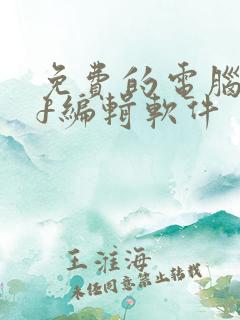 免費的電腦
f編輯軟件
王淮海
未经同意禁止转载